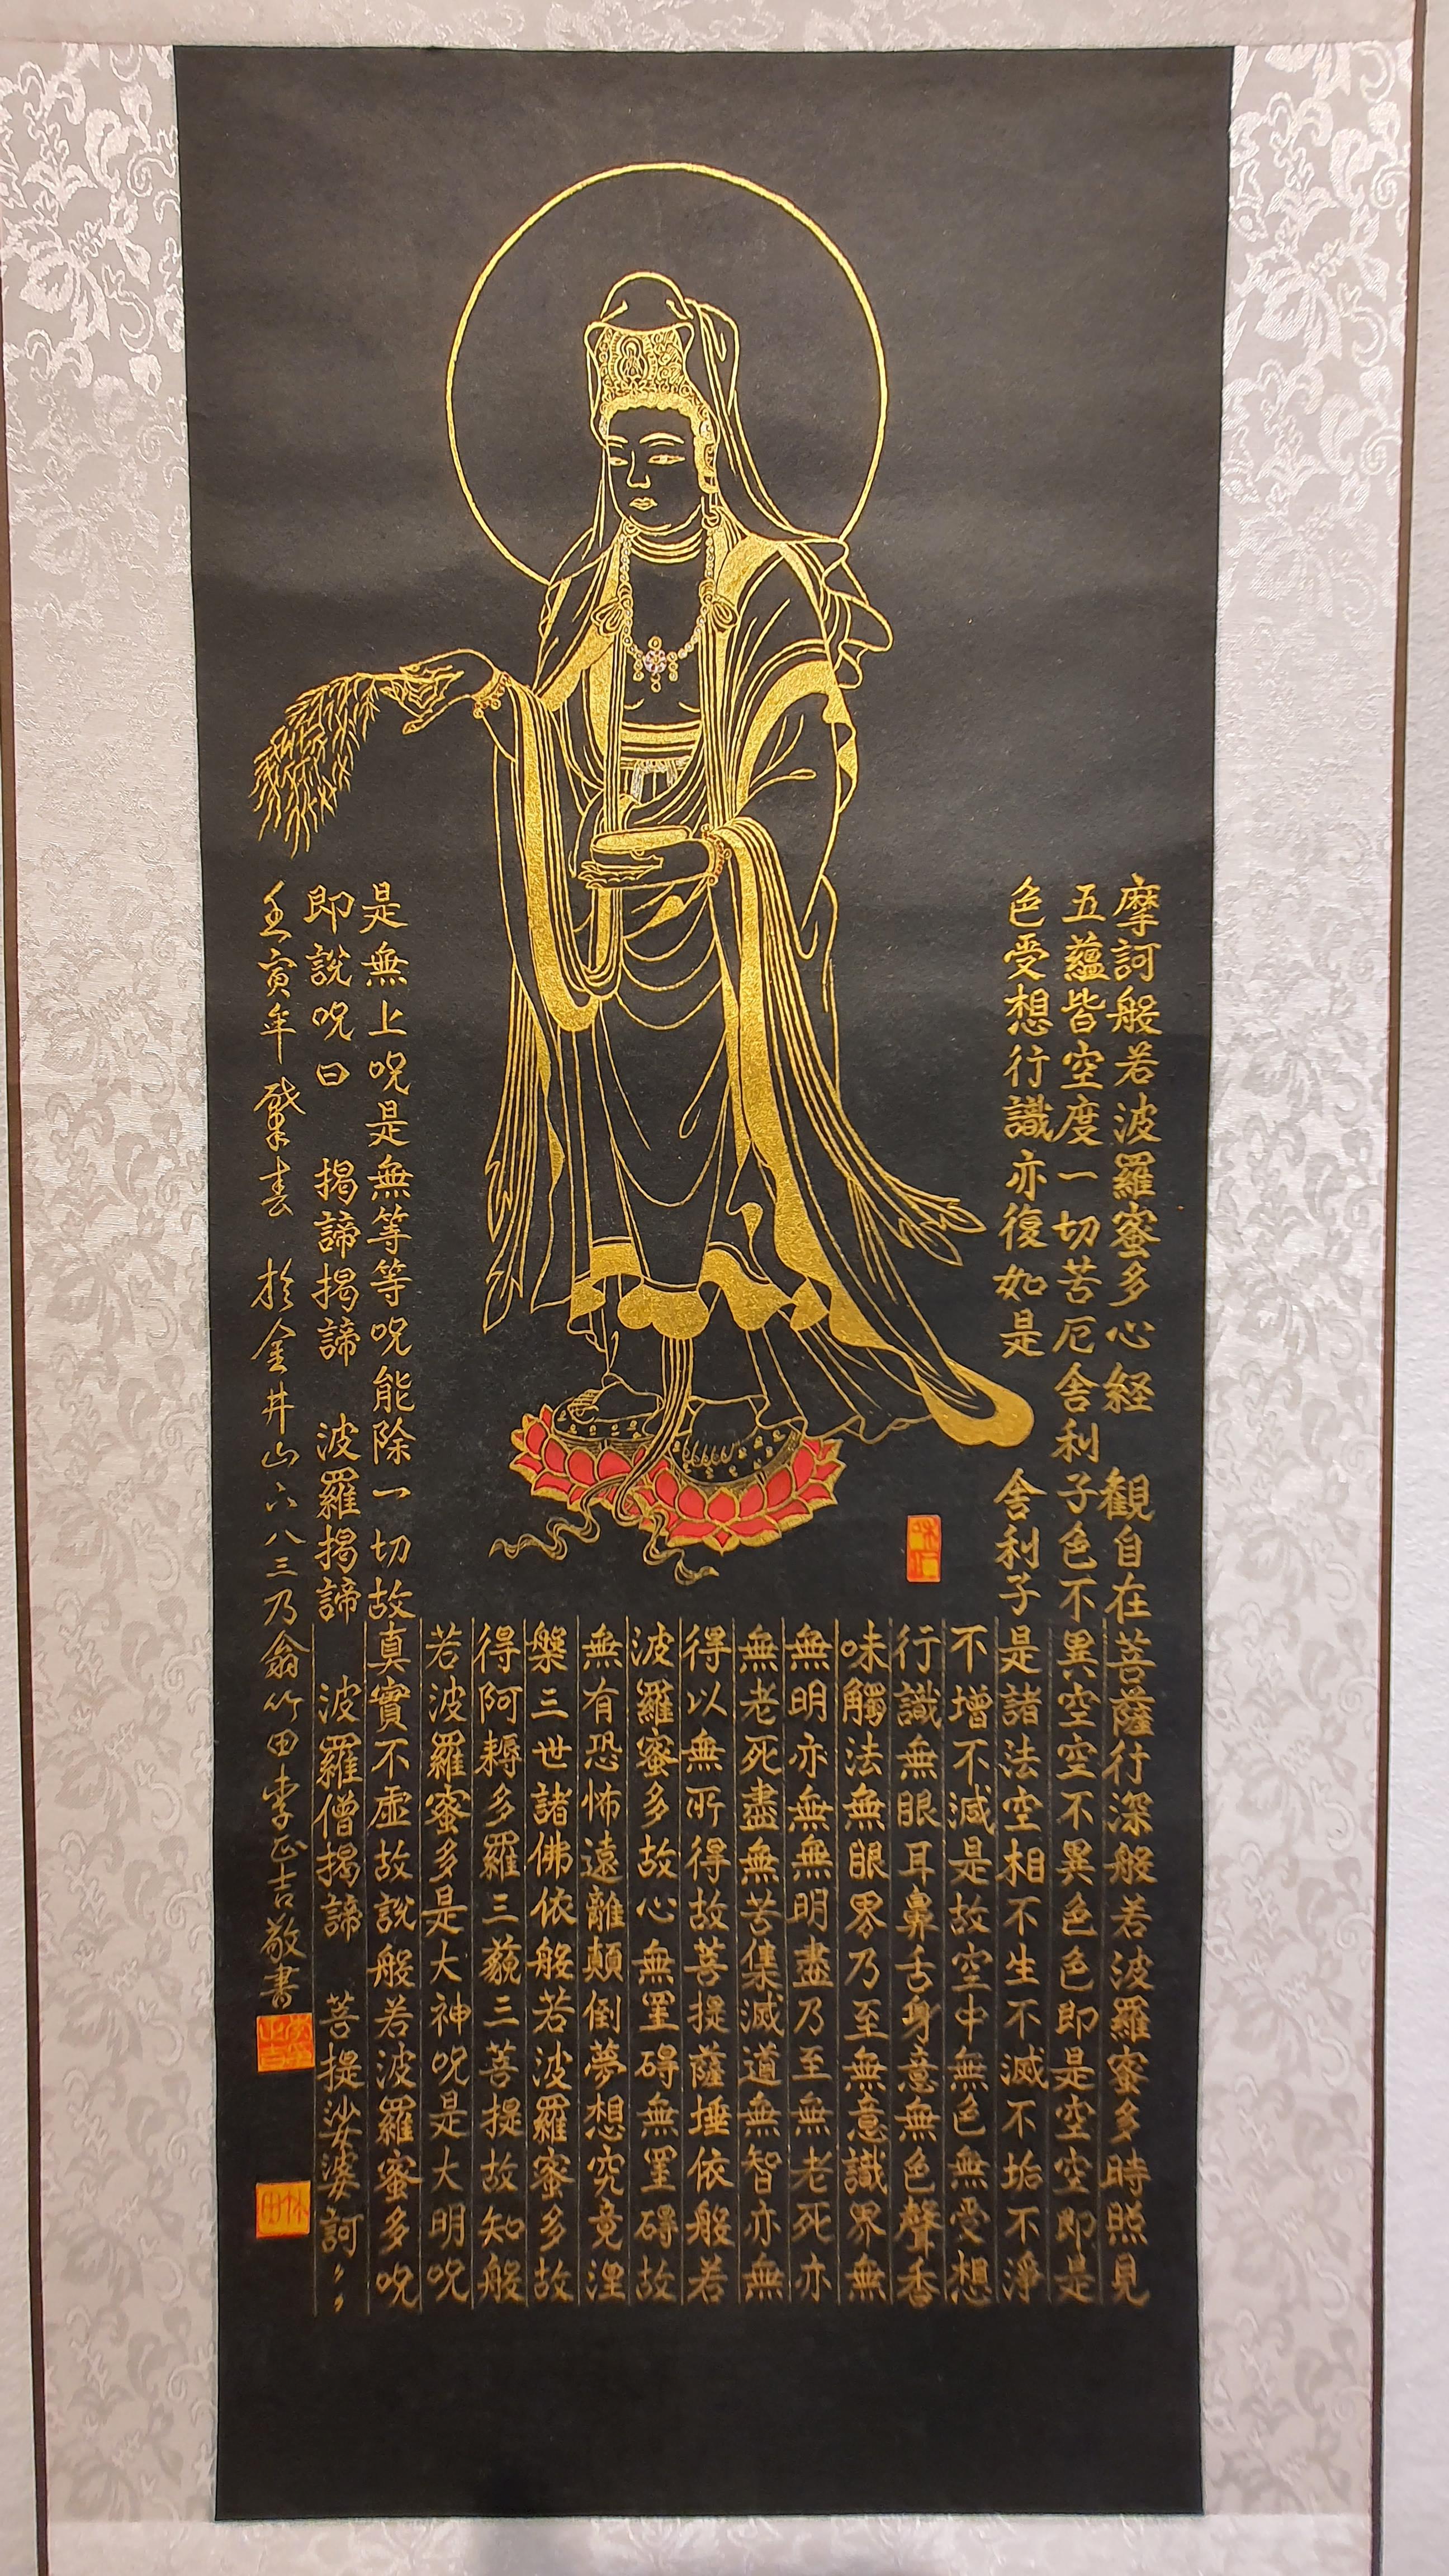 摩訶般若波羅蜜多心経 観自在菩薩行深般若波羅蜜多時照見
五蘊皆空度一切苦厄舍利子色不異空空不異色色即是空空即是
色受想行識亦復如是 舍利子是諸法空相不生不滅不垢不淨
不增不減是故空中無色無受想
行識無眼耳鼻舌身意無色聲香
味觸法無眼界乃至無意識界無
無明亦無無明盡乃至無老死亦
無老死盡無苦集滅道無智亦無
得以無所得故菩提薩埵依般若
波羅蜜多故心無罣碍無罣碍故
無有恐怖遠離顛倒夢想究竟涅
槃三世諸佛依般若波羅蜜多故
得阿耨多羅三藐三菩提故知般
若波羅蜜多是大神呪是大明呪
是無上呪是無等等呪能除一切故真實不虛故說般若波羅蜜多呪
即說呪曰 揭諦揭諦 波羅揭諦 波羅僧揭諦 菩提娑婆訶〻〻
壬寅年肇春 於金井山六八三乃翁竹田李正吉敬書